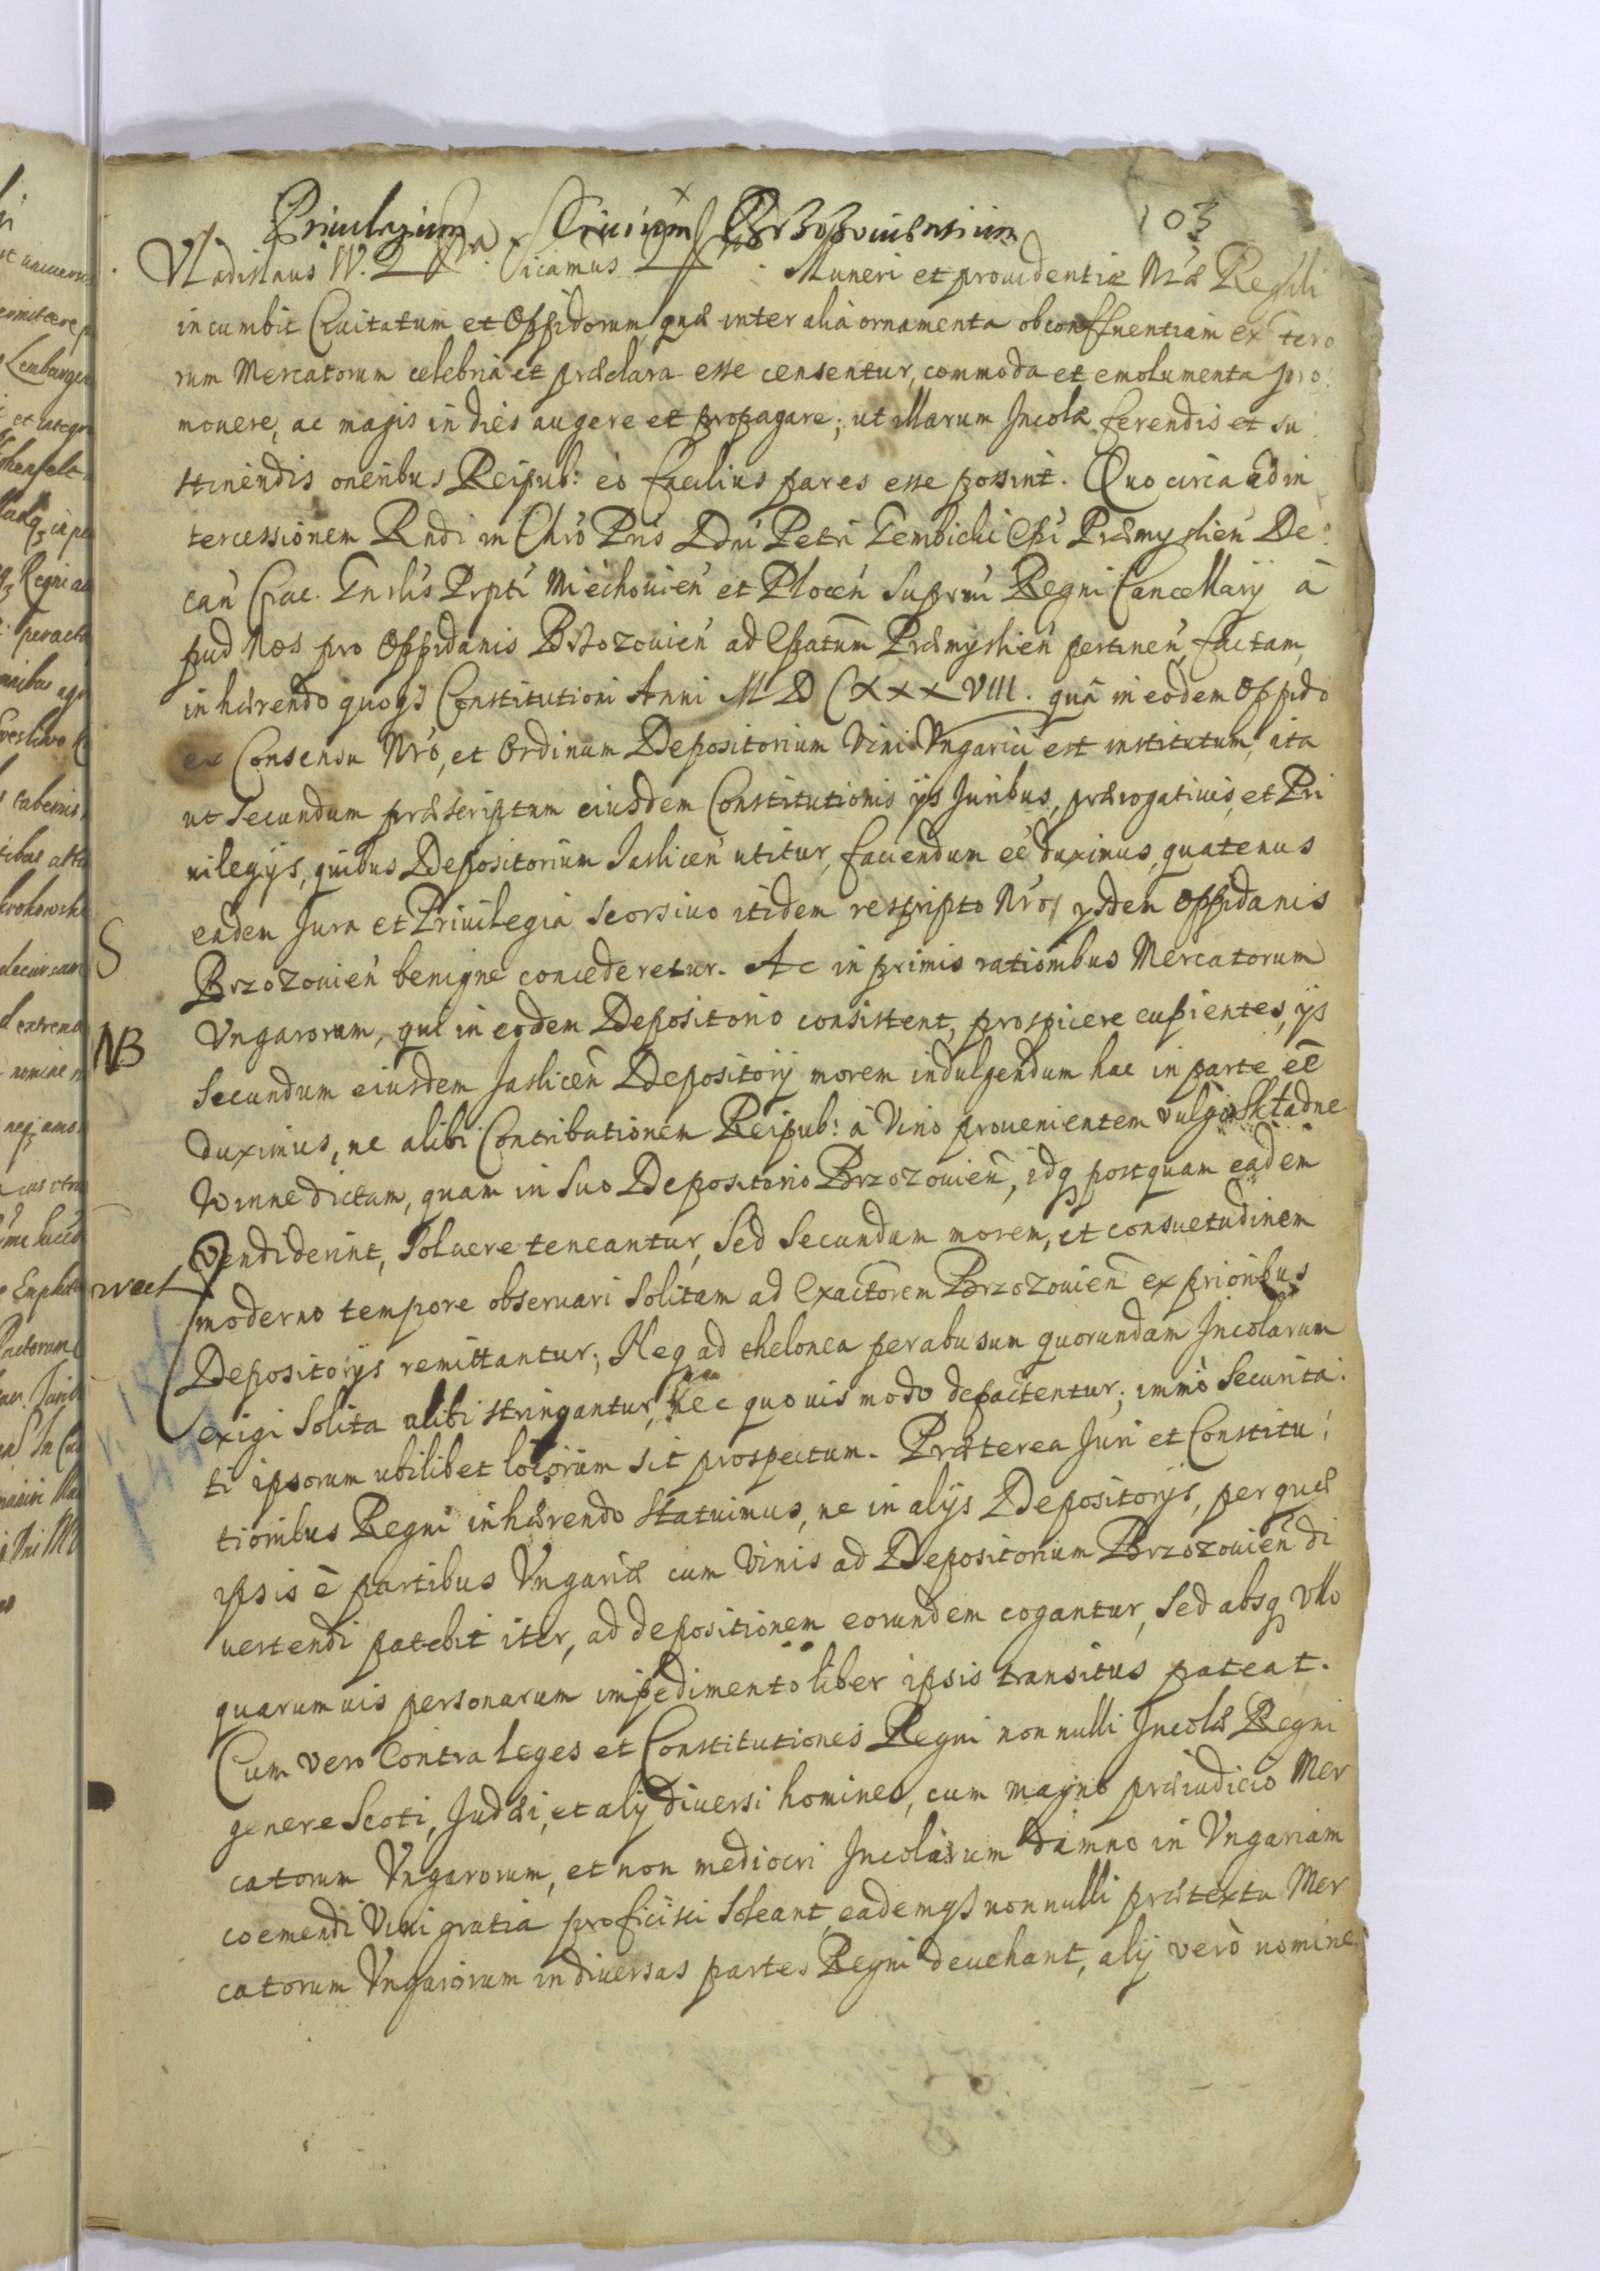 103
Priuilegium Ciuium Brzozouiensium
Vladislaus IV. Muneri et prouidentiæ Nræ Regali
incumbit Ciuitatum et Oppidorum, quæ inter alia ornamenta ob confluentiam extero
rum Mercatorum celebria et præclara esse censentur, commoda et emolumenta pro:
mouere, ac magis in dies augere et propagare; ut illarum Incolæ ferendis et su
stinendis oneribus Reipub: eò facilius pares esse possint. Quo circa ad in
tercessionem Rndi in Chrô Pris Dni Petri Gembicki Epi Præmyslien De:
can Crac. Gnrlis Prpti Miechouien et Plocen Supremi Regni Cancellarij à
pud Nos pro Oppidanis Brzozouien ad Epatum Præmyslien pertinen factam,
inhærendo quoqз Constitutioni Anni MDCXXXVIII. quâ in eodem Oppido
ex Consensu Nro, et Ordinum Depositorium Vini Vngarici est institutum, ita
ut secundum præscriptum eiusdem Constitutionis ijs Juribus, prærogatiuis, et Pri
uilegijs, quibus Depositorium Jaslicen utitur, faciendum eé duximus, quatenus
eadem Jura et Priuilegia seorsiuo itidem rescripto Nro, ijsdem Oppidanis
S
Brzozouien benigne concederetur. Ac in primis rationibus Mercatorum
NB
Vngarorum, qui in eodem Depositorio consistent, prospicere cupientes, ijs
secundum eiusdem Jaslicen Depositorij morem indulgendum hac in parte eé
duximus, ne alibi Contributionem Reipub: à Vino prouenientem vulgo Składne
winne dictam, quam in suo Depositorio Brzozouien, idq postquam eadem
vendiderint, soluere teneantur, sed secundum morem, et consuetudinem
moderno tempore obseruari solitam ad Exactorem Brzozouien ex prioribus
Depositorijs remittantur; Neq ad thelonea per abusum quorundam Incolarum
exigi solita alibi stringantur, nec quouis modo depactentur; immò securita:
ti ipsorum ubilibet locorum sit prospectum. Præterea Juri et Constitu:
tionibus Regni inhærendo statuimus, ne in alijs Depositorijs, per quæ
ipsis è partibus Vngariæ cum Vinis ad Depositorium Brzozouien di
uertendi patebit iter, ad depositionem eorundem cogantur, sed absq vllo
quarumuis personarum impedimento liber ipsis transitus pateat.
Cum vero contra leges et Constitutiones Regni non nulli Incolæ Regni
genere Scoti, Judæi, et alij diuersi homines, cum magno præiudicio Mer
catorum Vngarorum, et non mediocri Incolarum damno in Vngariam
coemendi Vini gratia proficisci soleant, eademqз non nulli prætextu Mer
catorum Vngarorum in diuersas partes Regni deuehant, alij verò nomine